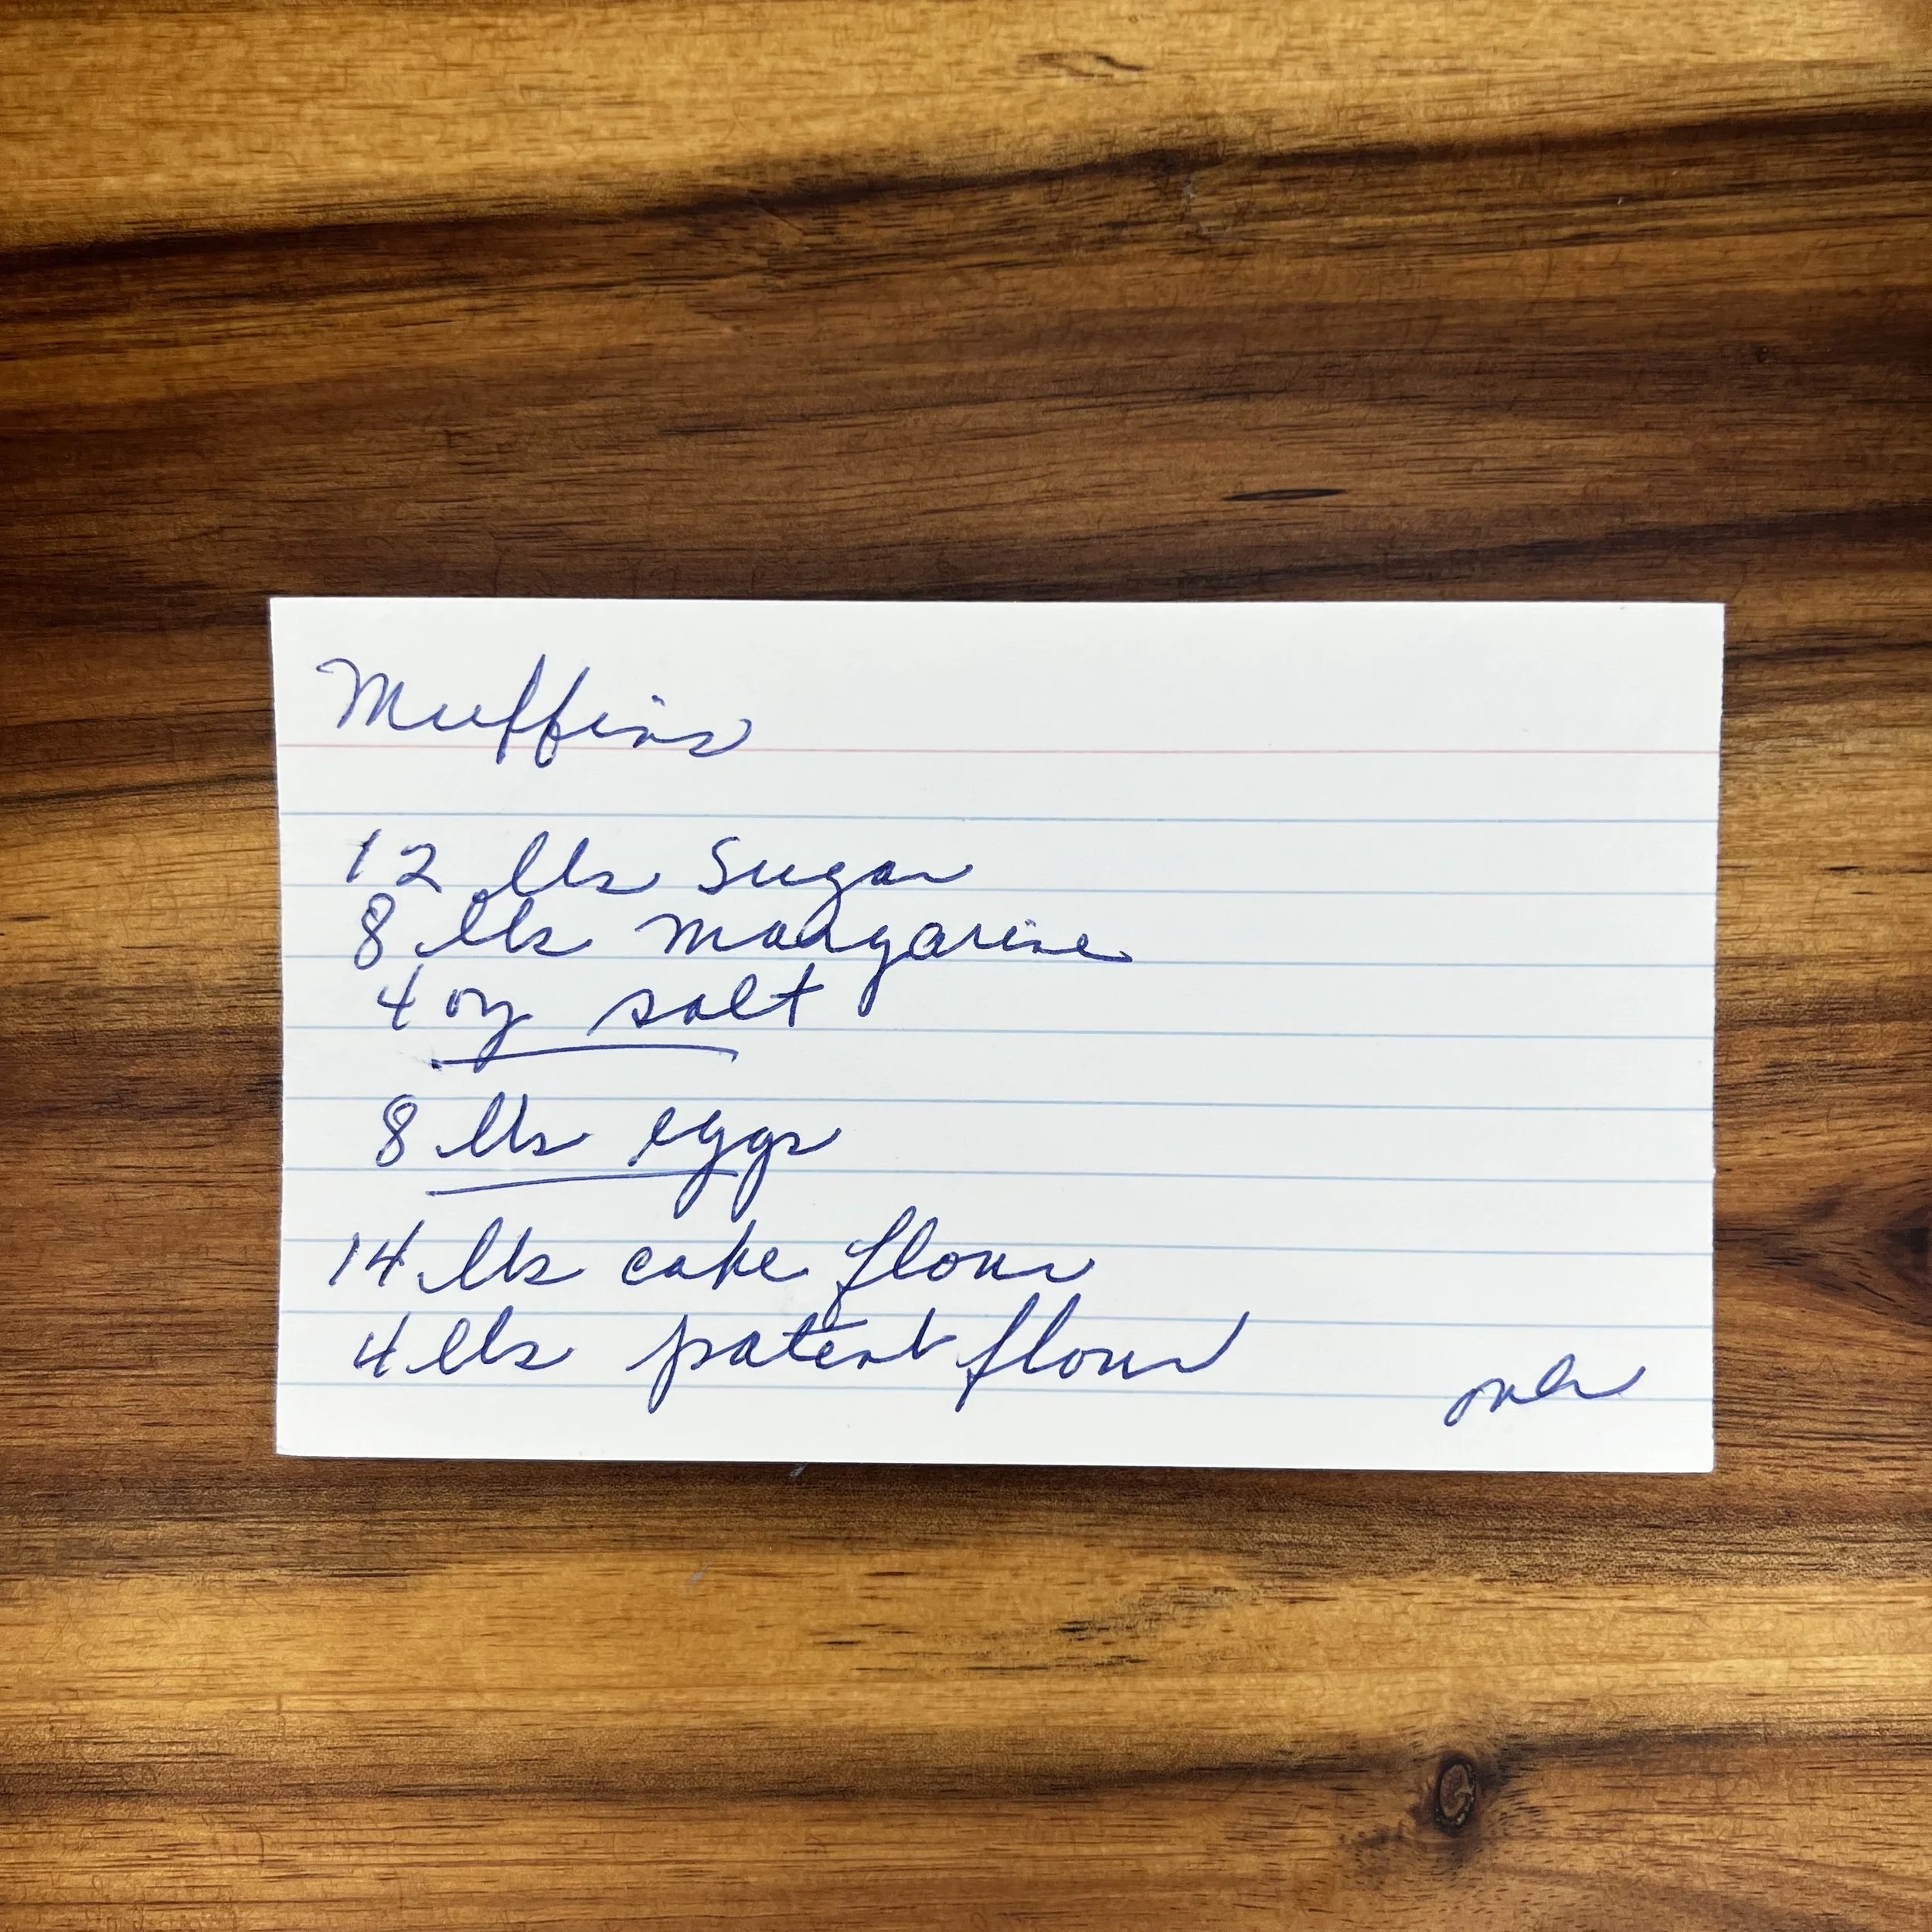 Muffins
12 lbs Sugar
8 lbs margarine
4 oz salt
8 lbs eggs
14 lbs cake flour
4 lbs patent flour
over